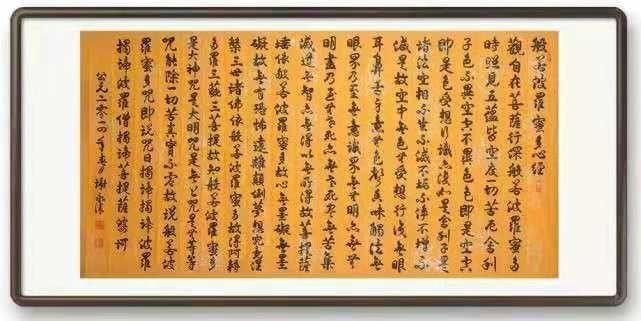 般若波羅蜜多心經
觀自在菩薩行深般若波羅蜜多
時照見五蘊皆空度一切苦厄舍利
子色不異空空不異色色即是空空
即是色受想行識亦復如是舍利子是
諸法空相不生不滅不垢不淨不增不
減是故空中無色無受想行識無眼
耳鼻舌身意無色聲香味觸法無
眼界乃至無意識界無無明亦無無
明盡乃至無老死亦無老死盡無苦集
滅道無智亦無得以無所得故菩提薩
埵依般若波羅蜜多故心無罣礙無罣
礙故無有恐怖遠離顛倒夢想究竟涅
槃三世諸佛依般若波羅蜜多故得阿耨
多羅三藐三菩提故知般若波羅蜜多
是大神咒是大明咒是無上咒是無等等
咒能除一切苦真實不虛故說般若波
羅蜜多咒即說咒曰揭諦揭諦波羅
揭諦波羅僧揭諦菩提薩婆訶
公元二零一四年春月謝永